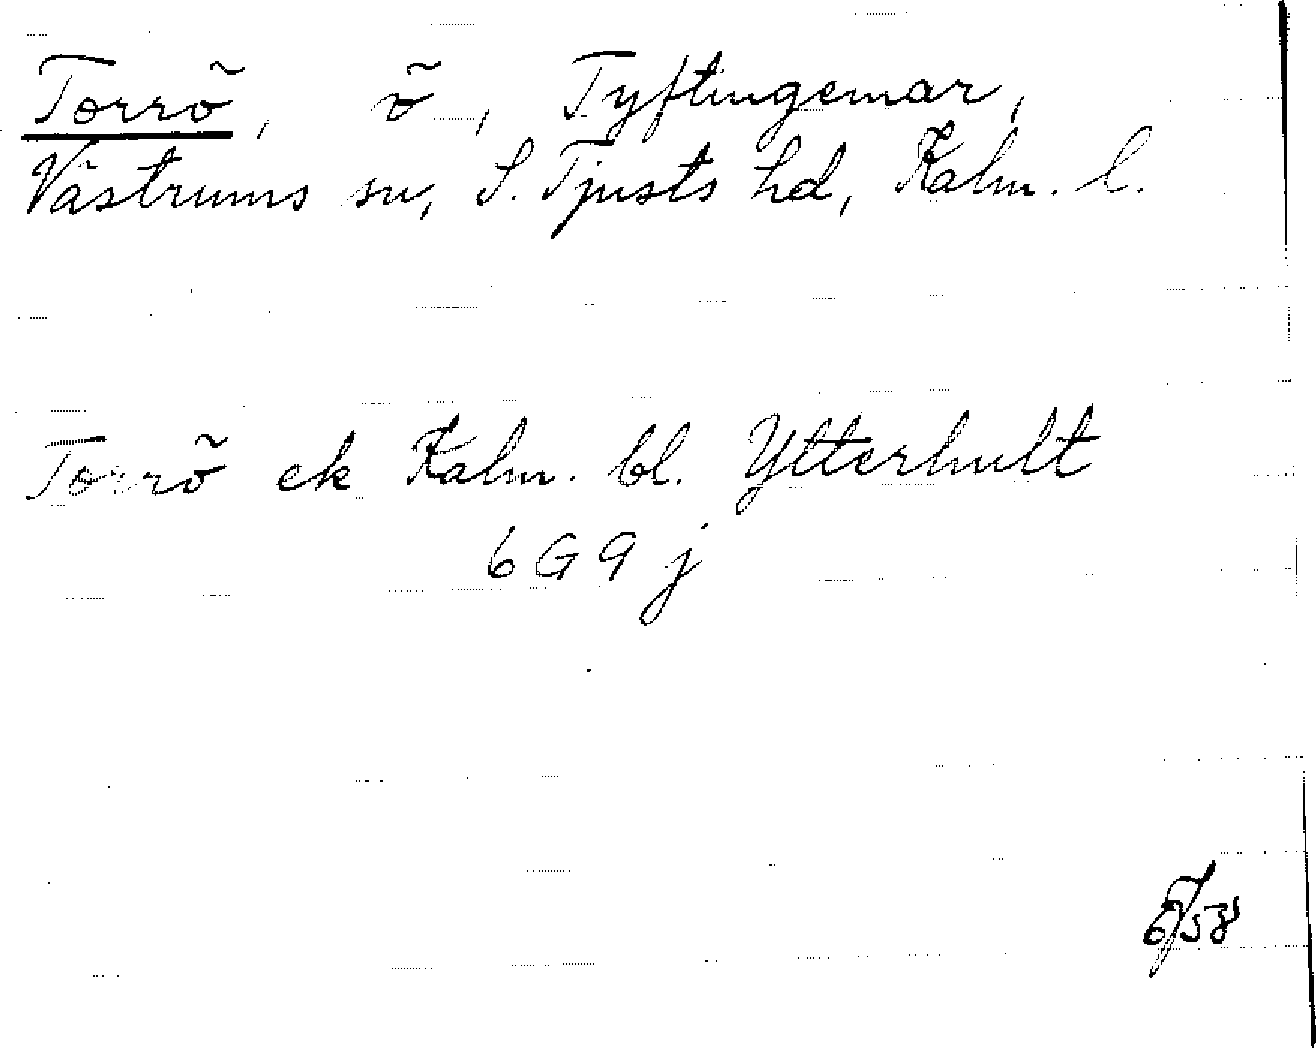 Torrö, ö, Tyftingemar,
Västrums sn, S. Tjusts hd, Kalm. l.
Torrö ek Kalm. bl. Ytterhult
6G9j